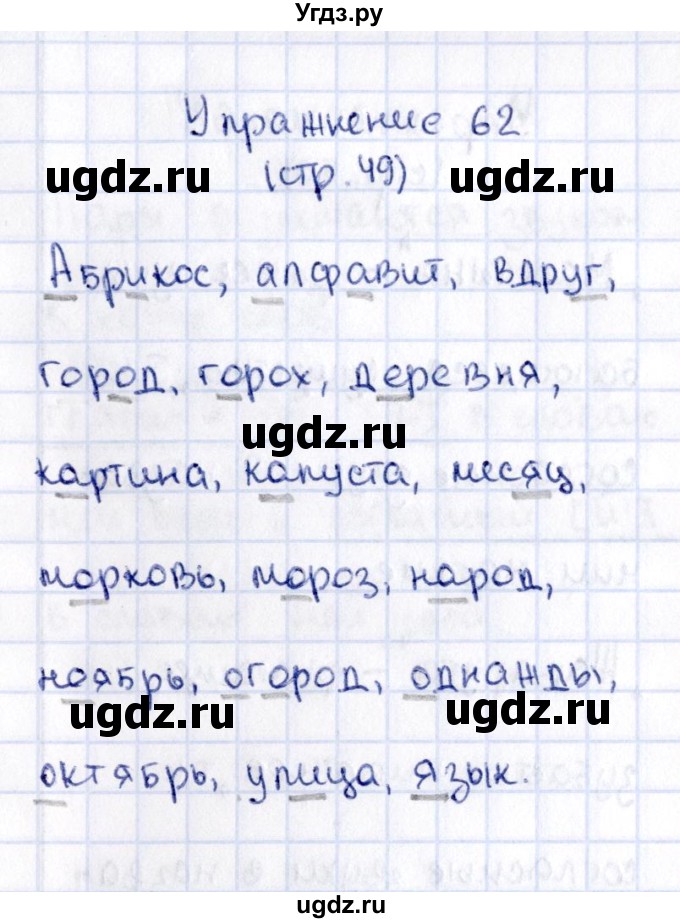 Угдз.ру
Упражнение 62
ugdz.ru (стр. 49) ugdz.ru
Абрикос, алфавит, вдруг,
город, горох, деревня,
ugdz.ru
картина, капуста, месяц,
морковь, мороз, народ,
ноябрь, огород, однажды,
ugdz.ru ugdz.ru
октябрь, улица, язык.
ugdz.ru